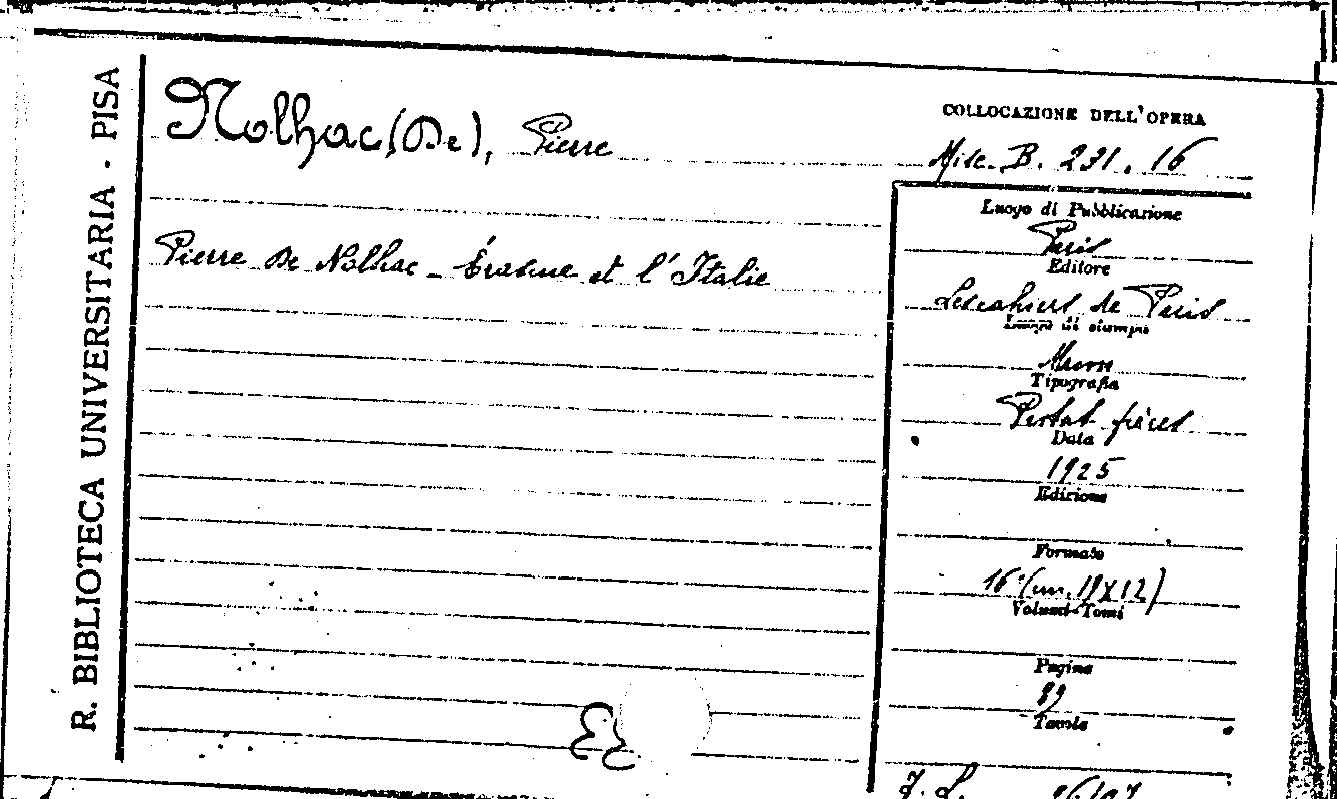 R. BIBLIOTECA UNIVERSITARIA - PISA
Nolhac (De), Pierre
COLLOCAZIONE DELL'OPERA
Misc. B. 231. 16
Pierre De Nolhac - Érasme et l'Italie
Luogo di Pubblicazione
Paris
Editore
Les cahiers de Paris
Luogo di stampa
Macon
Tipografia
Protat frères
Data
1925
Edizione
Formato
16° (cm. 19X12)
Volumi-Tomi
Pagine
89
Tavole